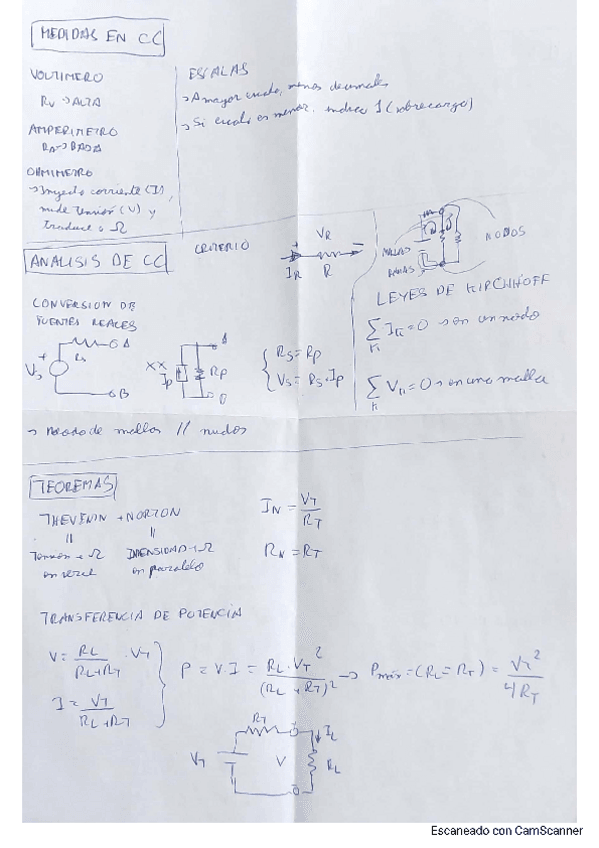 MEDIDAS EN CC
VOLTIMETRO
RV → ALTA
AMPERIMETRO
RA → BAJA
OHMIMETRO
→ Inyecta corriente (I),
mide tensión (V) y
traduce a Ω
ESCALAS
→ A mayor escala, menos decimales
→ Si escala es menor, indica 1 (sobrecarga)
ANALISIS DE CC
CRITERIO
VR
+
IR
R
MALLAS
RAMAS
NODOS
CONVERSION DE
FUENTES REALES
VS
+
RS
A
B
IP
RP
A
B
RS = RP
VS = RS · IP
LEYES DE KIRCHHOFF
∑ IK = 0 → en un nodo
K
∑ VK = 0 → en una malla
K
→ Método de mallas // nudos
TEOREMAS
THEVENIN + NORTON
Tensión + Ω
en serie
INTENSIDAD + Ω
en paralelo
IN = VT / RT
RN = RT
TRANSFERENCIA DE POTENCIA
V = RL / (RL + RT) · VT
I = VT / (RL + RT)
P = V · I = RL · VT² / (RL + RT)² → Pmáx = (RL = RT) = VT² / 4RT
RT
IL
VT
V
RL
Escaneado con CamScanner